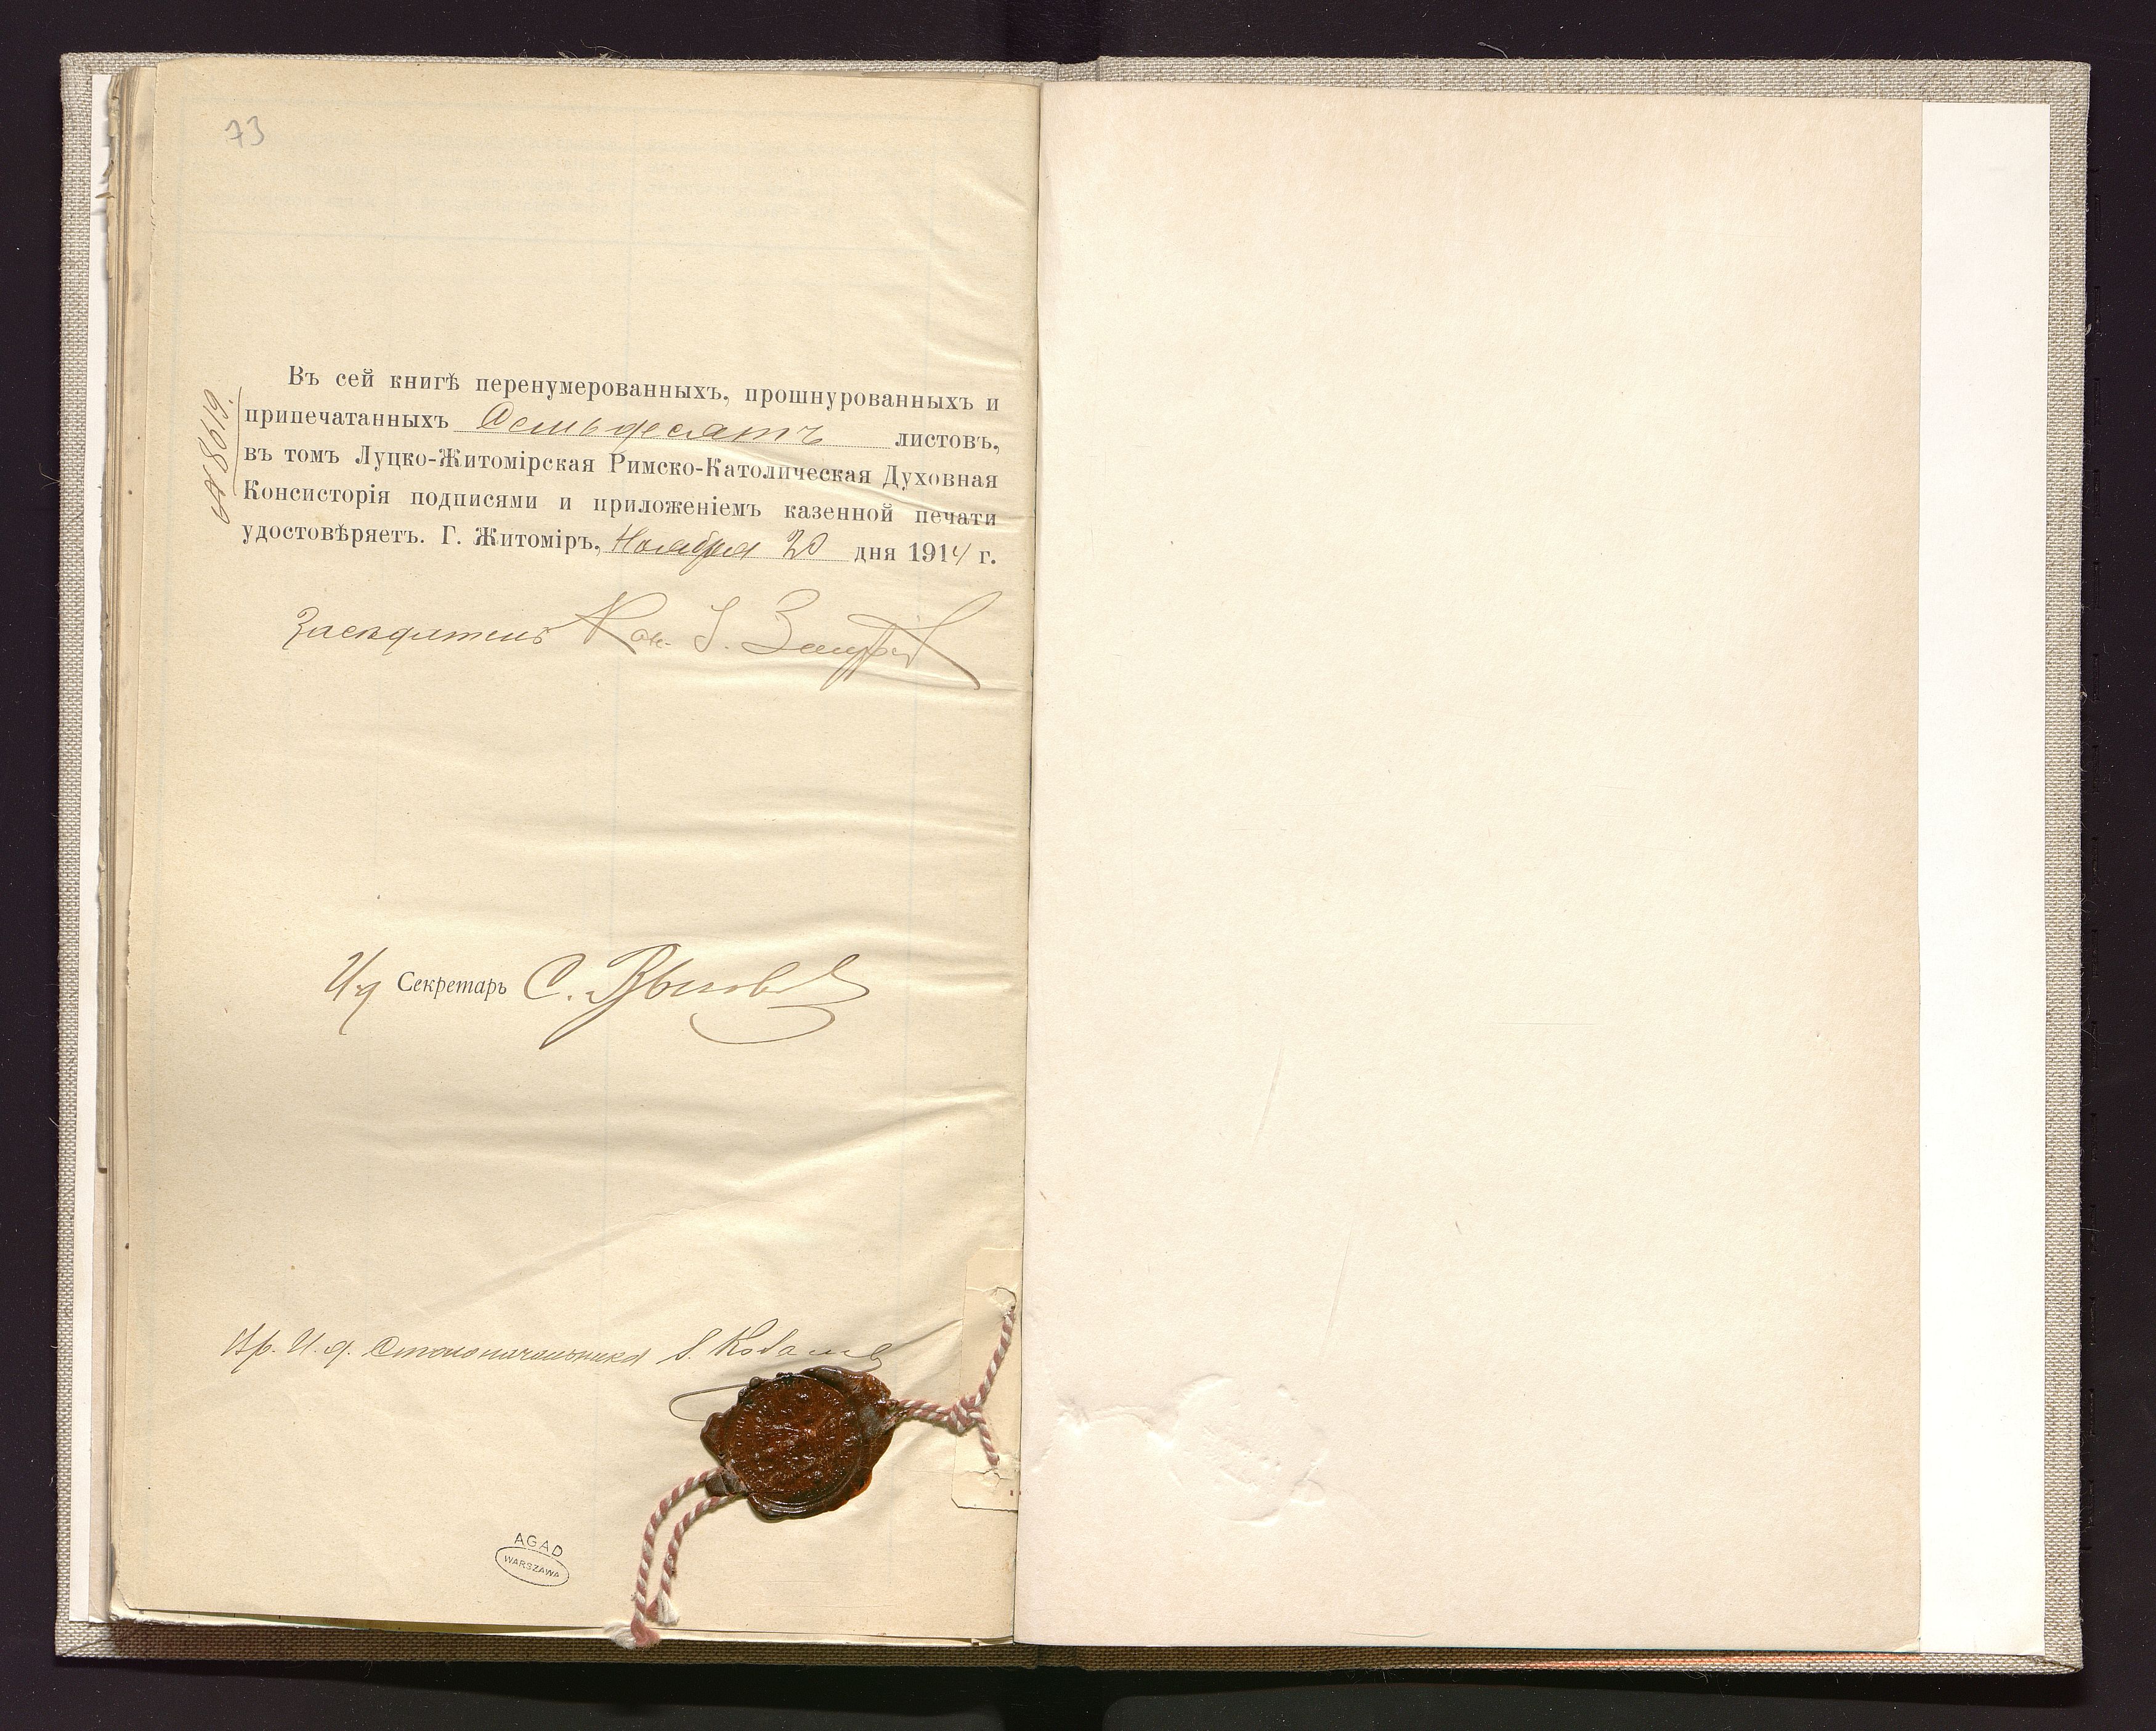 73
№ 8619.
Въ сей книгѣ перенумерованныхъ, прошнурованныхъ и
припечатанныхъ Семьдесятъ листовъ,
въ томъ Луцко-Житомірская Римско-Католическая Духовная
Консисторія подписями и приложеніемъ казенной печати
удостовѣряетъ. Г. Житоміръ, Ноября 20 дня 1914 г.
Засѣдатель Кан. І.
Ид Секретарь С.
Вр. И. д. Столоначальника
AGAD
WARSZAWA